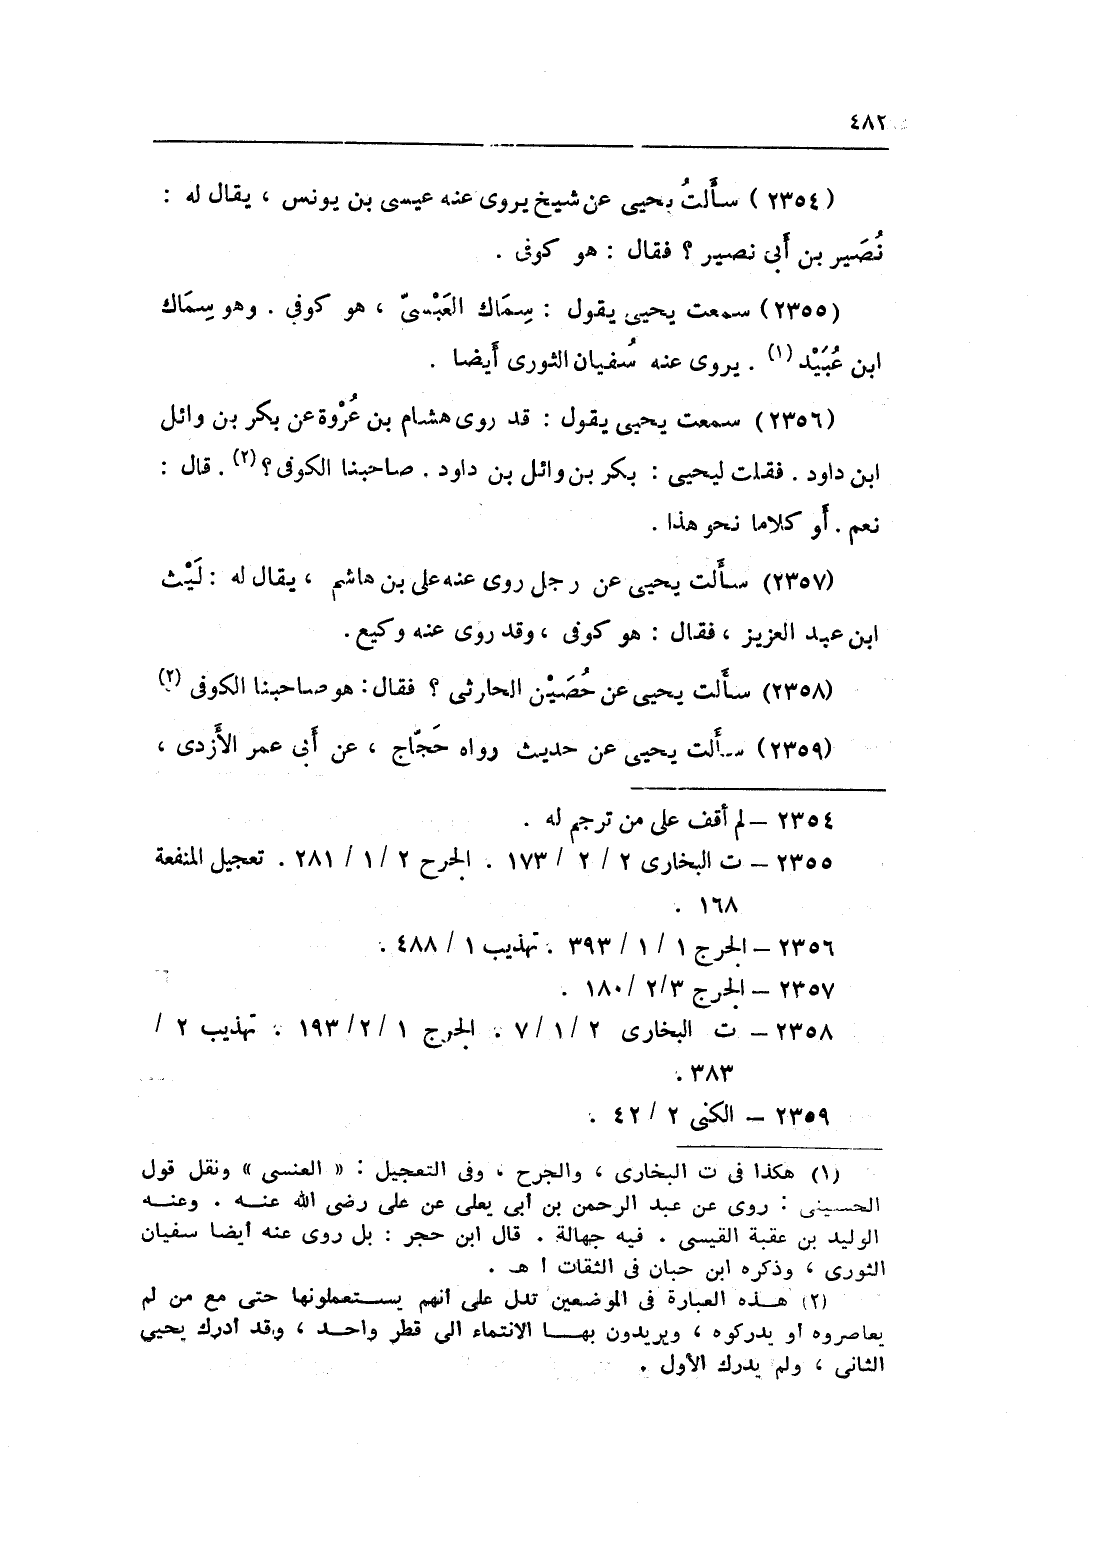 ٤٨٢
(٢٣٥٤) سأَلتُ يحيى عن شيخ يروى عنه عيسى بن يونس ، يقال له :
نُصَير بن أَبى نصير ؟ فقال : هو كوفى .
(٢٣٥٥) سمعت يحيى يقول : سِمَاك العَبْسىّ ، هو كوفى . وهو سِمَاك
ابن عُبَيْد (١) . يروى عنه سُفيان الثورى أَيضا .
(٢٣٥٦) سمعت يحيى يقول : قد روى هشام بن عُرْوة عن بكر بن وائل
ابن داود . فقلت ليحيى : بكر بن وائل بن داود . صاحبنا الكوفى ؟ (٢) . قال :
نعم . أَو كلاما نحو هذا .
(٢٣٥٧) سأَلت يحيى عن رجل روى عنه على بن هاشم ، يقال له : لَيْث
ابن عبد العزيز ، فقال : هو كوفى ، وقد روى عنه وكيع .
(٢٣٥٨) سأَلت يحيى عن حُصَيْن الحارثى ؟ فقال : هو صاحبنا الكوفى (٢)
(٢٣٥٩) سأَلت يحيى عن حديث رواه حَجّاج ، عن أَبى عمر الأَزدى ،
٢٣٥٤ – لم أقف على من ترجم له .
٢٣٥٥ – ت البخارى ٢ / ٢ / ١٧٣ . الجرح ٢ / ١ / ٢٨١ . تعجيل المنفعة
١٦٨ .
٢٣٥٦ – الجرح ١ / ١ / ٣٩٣ . تهذيب ١ / ٤٨٨ .
٢٣٥٧ – الجرح ٣/ ٢/ ١٨٠ .
٢٣٥٨ – ت البخارى ٢ /١ /٧ . الجرح ١ /٢ /١٩٣ . تهذيب ٢ /
٣٨٣ .
٢٣٥٩ – الكنى ٢ / ٤٢ .
(١) هكذا فى ت البخارى ، والجرح ، وفى التعجيل : « العنسى » ونقل قول
الحسينى : روى عن عبد الرحمن بن أبى يعلى عن على رضى الله عنـه . وعنـه
الوليد بن عقبة القيسى . فيه جهالة . قال ابن حجر : بل روى عنه أيضا سفيان
الثورى ، وذكره ابن حبان فى الثقات ا هـ .
(٢) هـذه العبارة فى الموضعين تدل على أنهم يسـتعملونها حتى مع من لم
يعاصروه أو يدركوه ، ويريدون بهـا الانتماء الى قطر واحـد ، وقد أدرك يحيى
الثانى ، ولم يدرك الأول .